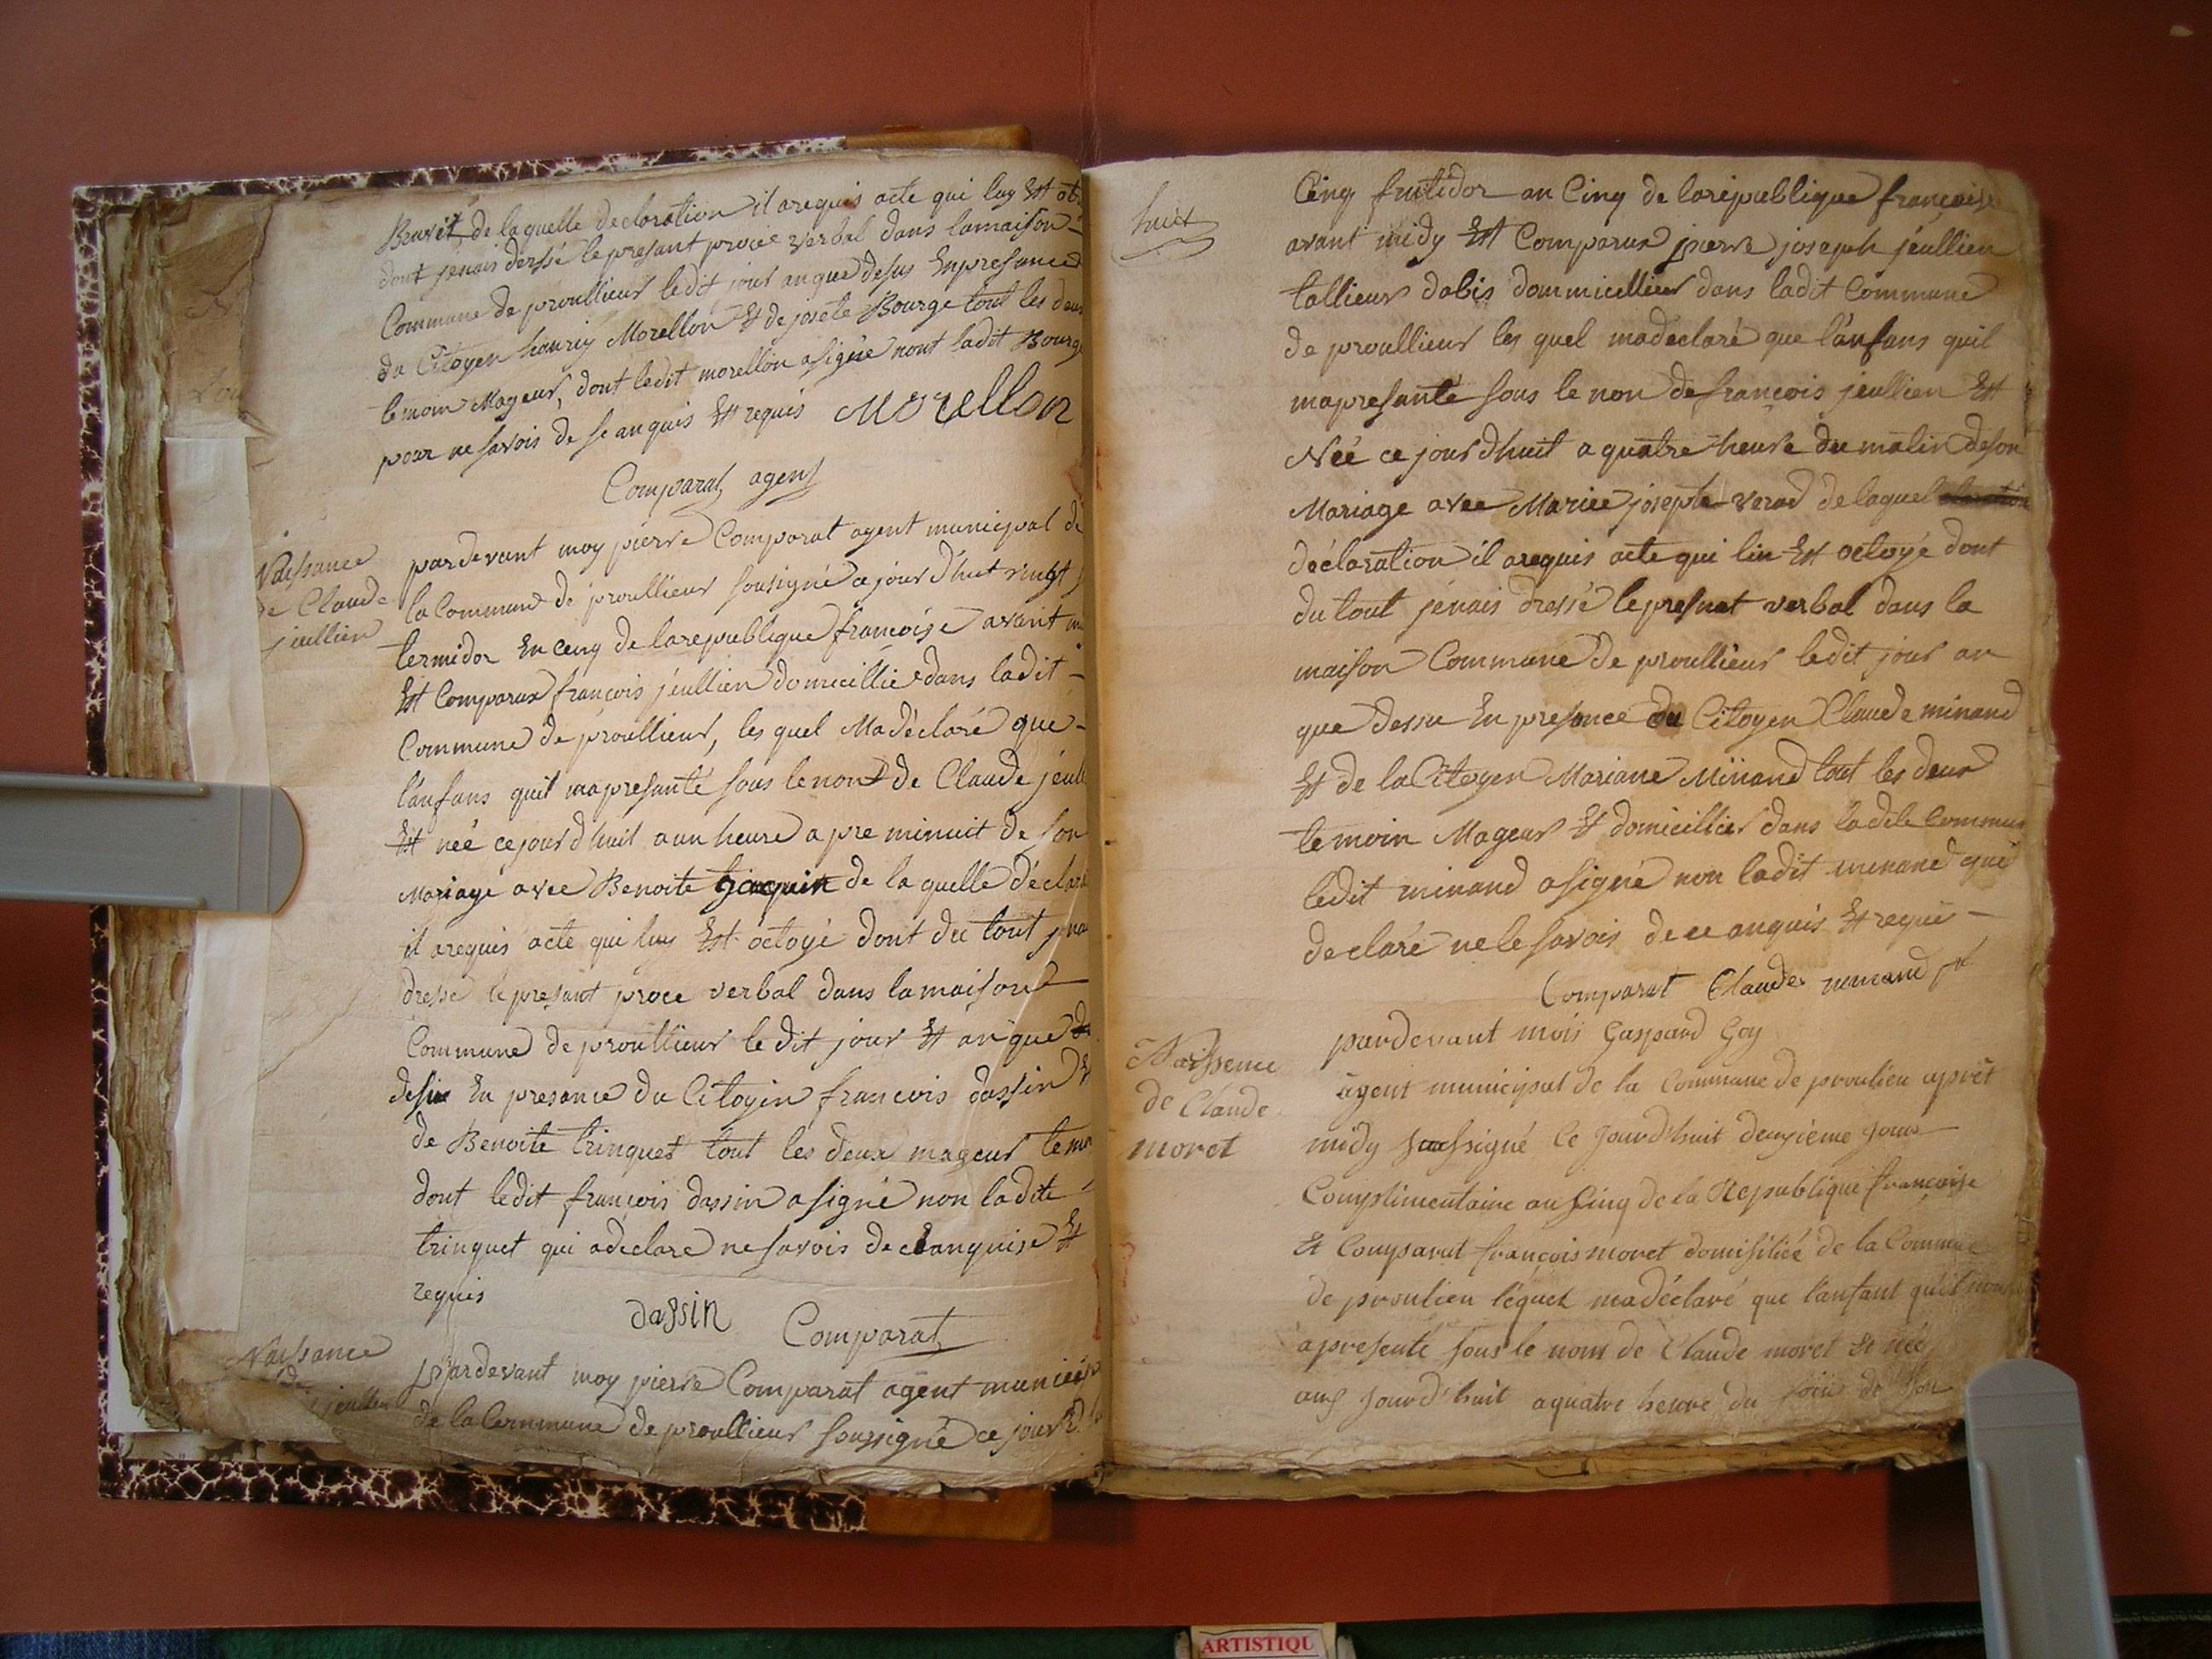 Benoit de laquelle declaration il arequis acte qui luy Est
dont jenais derssé le presant procé verbal dans lamaison
Commune de proullieur ledit jour anque desus Enpresance
du Citoyen henriy Morellon Et de josete Bourge tout les deux
temoin Mageur, dont ledit morellon asigné nont ladit Bourge
pour ne savois de se anquis Et requis Morellon
Comparat agent
Naissance
de Claude
jeullien
pardevant moy pierre Comparat agent municipal de
la Commune de proullieur sousigné ce jour d'huit vingt
termidor En cinq de larepublique françoise avant
Est Comparux françois jéullien domicillié dans ladit
Commune de proullieur, les quel Madéclaré que
l'anfans quil mapresanté sous le nont de Claude
Est néé cejourdhuit aun heure apre minuit de son
Mariage avec Benoite de laquelle
il arequis acte qui luy Est octoyé dont du tout
dressé le presant proce verbal dans lamaisont
Commune de proullieur ledit jour Et an que
desus En presance du Citoyin francois dassin Et
de Benoite trinquet tout les deux mageur
dont ledit françois dassin asigné non ladite
trinquet qui adeclare ne savois de ceanquise Et
requis
dassin Comparat
Naissance
de
jeullien
pardevant moy pierre Comparat agent
de la Commune de proullieur soussigné ce jour
huit
Cinq frutidor an Cinq de larépublique françoise
avant midy Est Comparux pierre joseph jéullien
tallieur dabis dommicillier dans ladit Commune
de proullieur les quel madéclaré que l'anfans quil
mapresanté sous le non de françois jeullien Est
Néé ce jourdhuit a quatre heure du matin deson
Mariage avec Mariee josepte de laquel
déclaration il arequis acte qui lui Est octoyé dont
du tout jénais dressé le presnat verbal dans la
maison Commune de proullieur ledit jour an
que dessu En presence du Citoyen Claude minand
Et de la Citoyen Mariane Minand tout les deux
temoin Mageur Et domicillier dans ladite Commune
ledit minand asigné non ladit minand qui
declaré ne le savois de ce anquis Et requis
Comparat Claude minand
Naissence
de Claude
moret
pardevant mois Gaspard Goy
agent municipal de la Commune de proulieu aprêt
midy soussigné Ce Jourd'huit deuzième jour
Complimentaire an Cinq de la Republique françoise
Et Comparut françois moret domisilié de la Commune
de proulieu léquel madéclaré que l'anfant qu'il nous
apresenté sous le nom de Claude moret et néé
aus Jourd'huit aquatre heure du soire de son